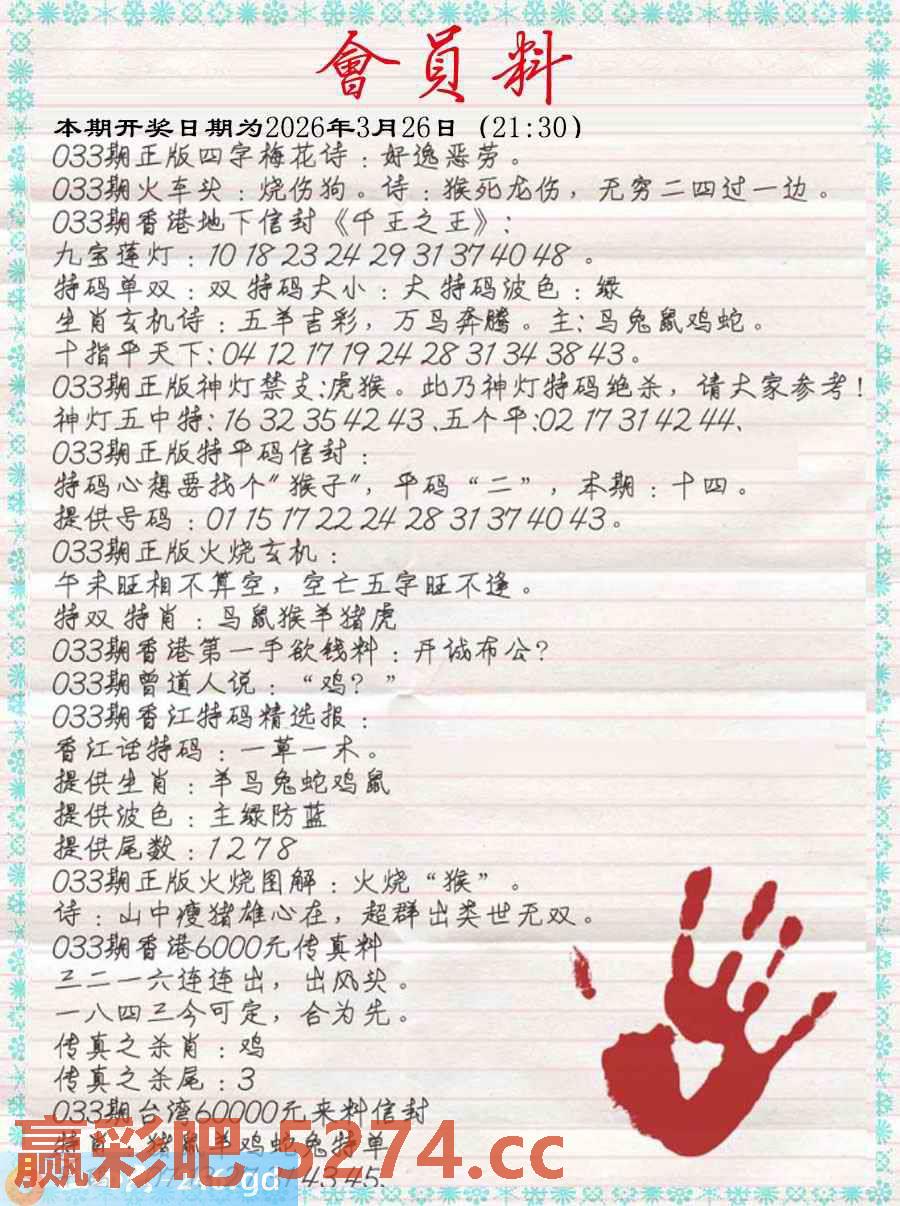 會員料
本期开奖日期为2026年3月26日（21:30）
033期正版四字梅花诗：好逸恶劳。
033期火车头：烧伤狗。诗：猴死龙伤，无穷二四过一边。
033期香港地下信封《千王之王》：
九宝莲灯：10 18 23 24 29 31 37 40 48 。
特码单双：双 特码大小：大 特码波色：绿
生肖玄机诗：五羊吉彩，万马奔腾。主：马兔鼠鸡蛇。
十指平天下：04 12 17 19 24 28 31 34 38 43。
033期正版神灯禁支：虎猴。此乃神灯特码绝杀，请大家参考！
神灯五中特：16 32 35 42 43 、五个平：02 17 31 42 44、
033期正版特平码信封：
特码心想要找个"猴子"，平码“二”，本期：十四。
提供号码：01 15 17 22 24 28 31 37 40 43。
033期正版火烧玄机：
午未旺相不算空，空亡五字旺不逢。
特双 特肖：马鼠猴羊猪虎
033期香港第一手欲钱料：开诚布公？
033期曾道人说：“鸡？”
033期香江特码精选报：
香江话特码：一草一木。
提供生肖：羊马兔蛇鸡鼠
提供波色：主绿防蓝
提供尾数：1 2 7 8
033期正版火烧图解：火烧“猴”。
诗：山中瘦猪雄心在，超群出类世无双。
033期香港6000元传真料
三二一六连连出，出风头。
一八四三今可定，合为先。
传真之杀肖：鸡
传真之杀尾：3
033期台湾60000元来料信封
特肖：猪鼠羊鸡蛇兔特单
赢彩吧.5274.cc
43 45、